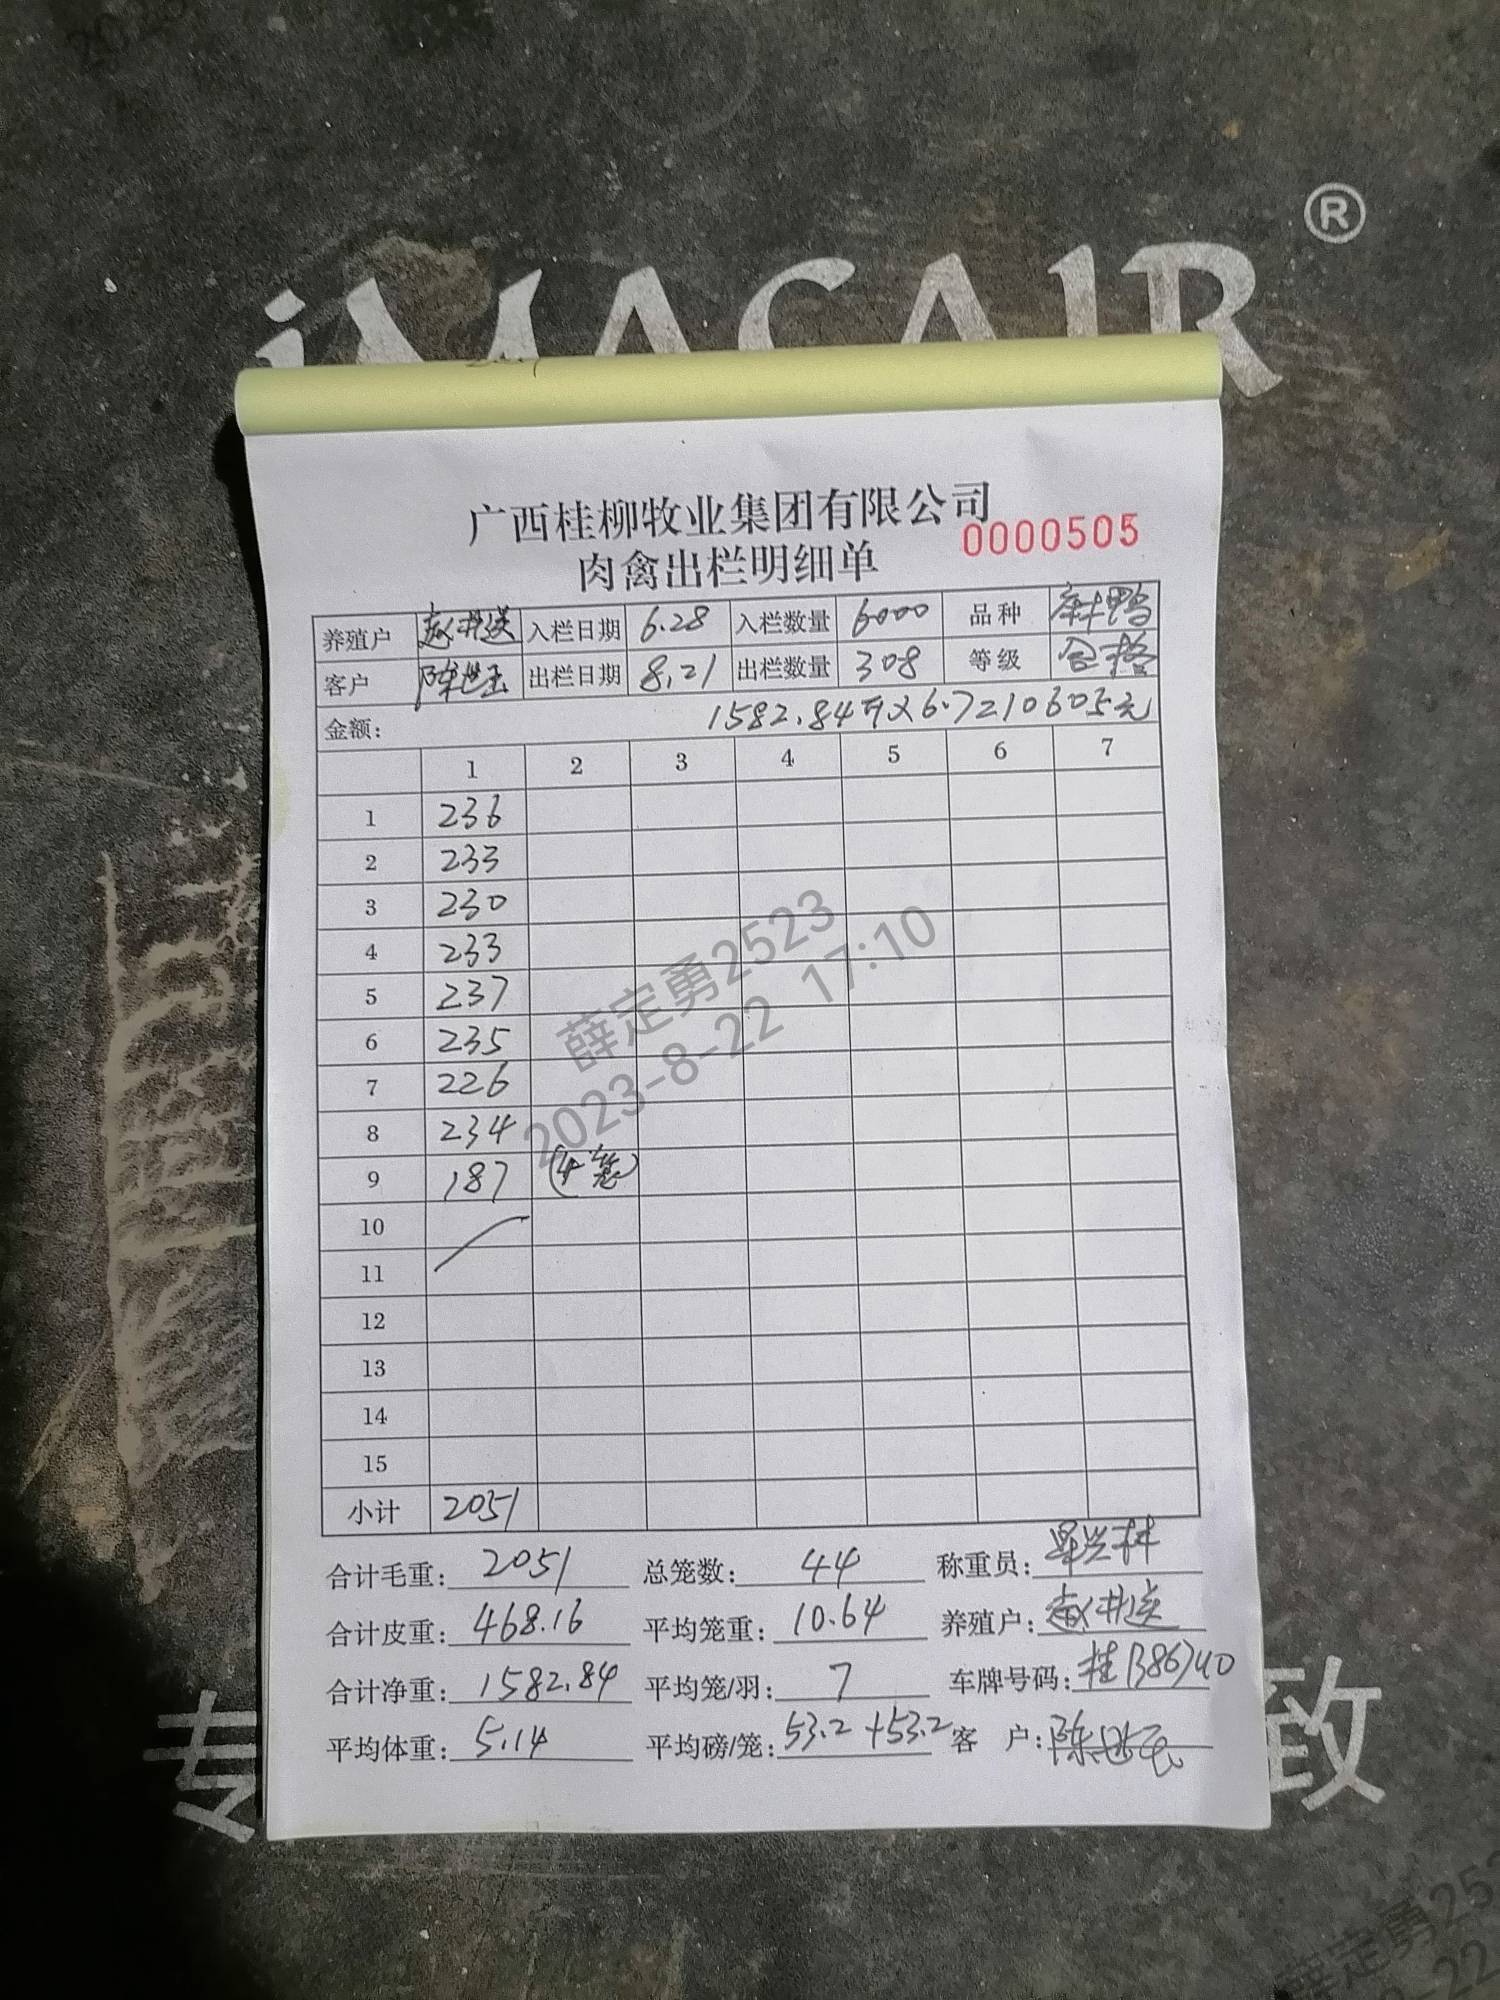 iMACAIR®
广西桂柳牧业集团有限公司
肉禽出栏明细单 0000505
养殖户 赵井送 入栏日期 6.28 入栏数量 6000 品种 麻鸭
客户 陈世玉 出栏日期 8.21 出栏数量 308 等级 合格
金额: 1582.84斤×6.7=10605元
1 2 3 4 5 6 7
1 236
2 233
3 230
4 233
5 237
6 235
7 226
8 234
9 187 (4笼)
10
11
12
13
14
15
小计 2051
合计毛重: 2051 总笼数: 44 称重员:
合计皮重: 468.16 平均笼重: 10.64 养殖户: 赵井送
合计净重: 1582.84 平均笼/羽: 7 车牌号码:
平均体重: 5.14 平均磅/笼: 53.2+53.2 客 户: 陈世玉
专 致
薛定勇2523
2023-8-22 17:10